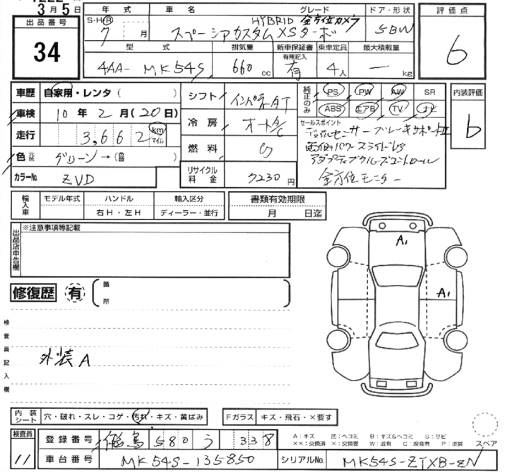 3月5日
出品番号
34
S・H・R 年式 車名 グレード ドア・形状 評価点
7 月
スペーシアカスタム HYBRID XSターボ
全方位カメラ
5BW
6
型式 排気量 新車保証書 乗車定員 最大積載量
有無記入
4AA-MK54S 660cc 有 4人 kg
車歴 自家用・レンタ( )
車検 10年2月(20日)
走行 3,662 km マイル
色 グリーン→
カラーNo ZVD
シフト インパネAT
冷房 オートA/C
燃料 G
リサイクル料金 7230円
純正のみ
PS PW AW SR
ABS エアB TV ナビ
セールスポイント
デュアルセンサーブレーキサポートII
両側パワースライドドア
アダプティブクルーズコントロール
全方位モニター
内装評価
b
輸入車 モデル年式 ハンドル 輸入区分 書類有効期限
年 右H・左H ディーラー・並行 月 日迄
出品店申告欄
※注意事項等記載
修復歴 有 箇所
検査員記入欄
外装A
A1
A1
内装シート 穴・破れ・スレ・コゲ・汚れ・キズ・黄ばみ
Fガラス キズ・飛石・×要す
検査員
11
登録番号 580 う 338
A:キズ
スペア
車台番号 MK54S-135850
シリアルNo MK54S-ZTXB-ZN